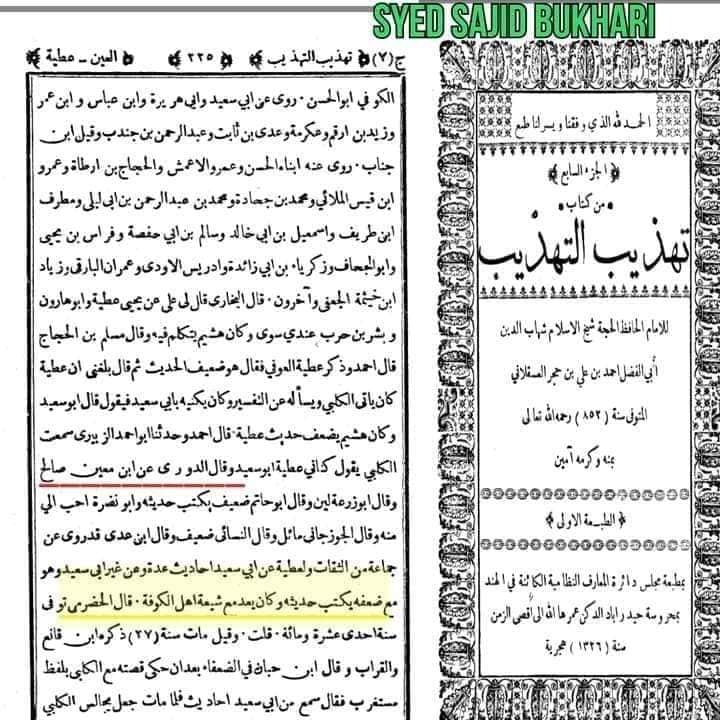 SYED SAJID BUKHARI
الحمد لله الذي وفقنا ويسرلنا طبع
﴿ الجزء السابع ﴾
من كتاب
تهذيب التهذيب
للامام الحافظ الحجة شيخ الاسلام شهاب الدين
أبي الفضل احمد بن علي بن حجر العسقلاني
المتوفى سنة (٨٥٢) رحمه الله تعالى
بمنه وكرمه آمين
﴿ الطبعة الاولى ﴾
بمطبعة مجلس دائرة المعارف النظامية الكائنة في الهند
بمحروسة حيدراباد الدكن عمرها الله الى اقصى الزمن
سنة (١٣٢٦) هجرية
ج (٧) ﴿ تهذيب التهذيب ﴾ ﴿ ٢٢٥ ﴾ ﴿ العين - عطية ﴾
الكوفي ابوالحسن . روى عن ابي سعيد وابي هريرة وابن عباس وابن عمر
وزيدبن ارقم وعكرمة وعدى بن ثابت وعبدالرحمن بن جندب وقيل ابن
جناب . روى عنه ابناه الحسن وعمرو الاعمش والحجاج بن ارطاة وعمرو
ابن قيس الملائي ومحمدبن جحادة ومحمدبن عبدالرحمن بن ابى ليلى ومطرف
ابن طريف واسمعيل بن ابي خالد وسالم بن ابي حفصة وفراس بن يحيى
وابوالجحاف وزكرياء بن ابي زائدة وادريس الاودى وعمران البارقي وزياد
ابن خيثمة الجعفى وآخرون . قال البخارى قال لي على عن يحيى عطية وابوهارون
وبشربن حرب عندي سوى وكان هشيم يتكلم فيه وقال مسلم بن الحجاج
قال احمد وذكر عطية العوفي فقال هو ضعيف الحديث ثم قال بلغنى ان عطية
كان ياتى الكلبي ويسأله عن التفسير وكان يكنيه بابي سعيد فيقول قال ابوسعيد
وكان هشيم يضعف حديث عطية . قال احمد وحدثنا ابو احمد الزبيرى سمعت
الكلبي يقول كناني عطية ابوسعيد وقال الدورى عن ابن معين صالح
وقال ابوزرعة لين وقال ابوحاتم ضعيف يكتب حديثه وابو نضرة احب الي
منه وقال الجوزجاني مائل وقال النسائى ضعيف وقال ابن عدى قدروى عن
جماعة من الثقات ولعطية عن ابي سعيد احاديث عدة وعن غير ابي سعيد وهو
مع ضعفه يكتب حديثه وكان يعد مع شيعة اهل الكوفة . قال الحضرمى توفى
سنة احدى عشرة ومائة . قلت . وقيل مات سنة (٢٧) ذكره ابن قانع
والقراب وقال ابن حبان في الضعفاء بعدان حكى قصته مع الكلبي بلفظ
مستغرب فقال سمع من ابي سعيد احاديث فلما مات جعل يجالس الكلبي